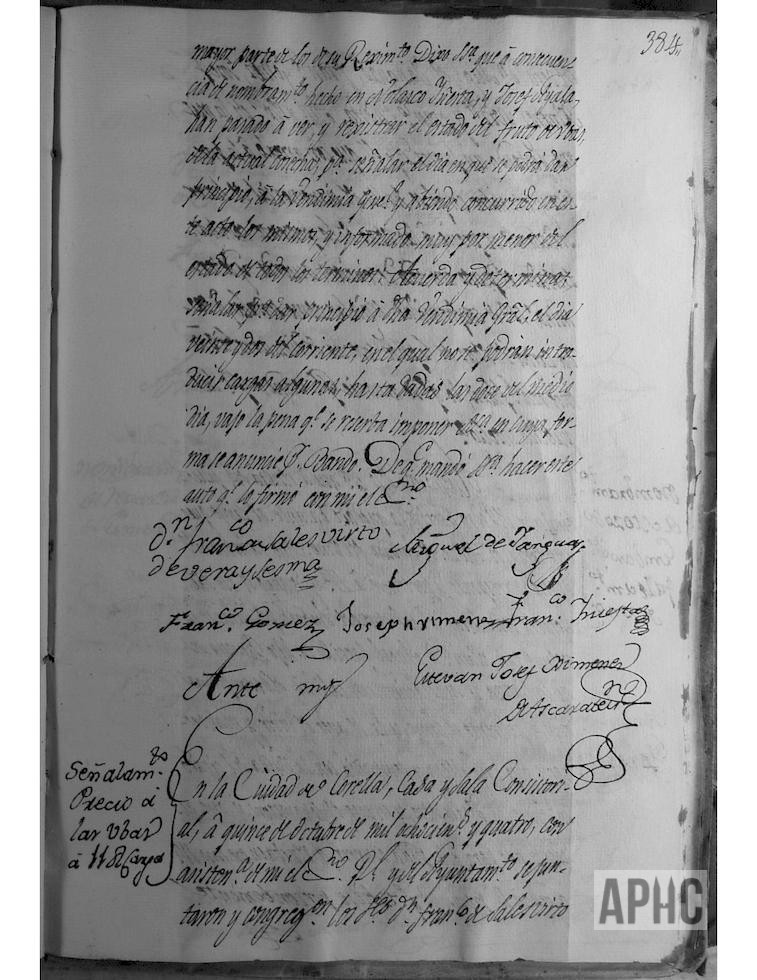 384
mayor parte de los de su Reximto. Dixo Sria. que â consecuen
cia de nombramto. hecho en Velasco Yñesta, y Josef Ayala,
han pasado â ver, y rexistrar el estado del fruto de Ubas,
dela actual cosecha, pa. señalar el dia en que se podrá dar
principio, â la Vendimia Gral. y abiendo concurrido en es-
te acto los mismos, y informado muy por menor del
estado de todos los terminos: Acuerda y determina:
señalar pa. dar principio â dha Vendimia Gral. el dia
veinte y dos del corriente, en el qual no se podrán intro-
ducir cargas algunas, hasta dadas las doce del medio
dia, vajo la pena qe. se reserba imponer Sria. en cuya for-
ma se anuncie Pr. Bando. De qe. mandó Sria. hacer este
auto qe. lo firmó con mi el Esno.
Dn. Franco. Sales Virto
de Vera y Lesma
Miguel de Tanguas
Franco. Gomez
Joseph Ximenez
Franco. Yñesta
Ante my
Estevan Josef Ximenez
de Ascarate
Señalamto.
Precio â
las Ubas
â 11 R Carga
En la Ciudad de Corella, Casa y Sala Consistori-
al, â quince de Octubre de mil ochocients. y quatro, con
asistena. de mi el Esno. Rl. y del Ayuntamto. se jun-
taron y congregon. los Sres. Dn. Franco. de Sales Virto
APHC